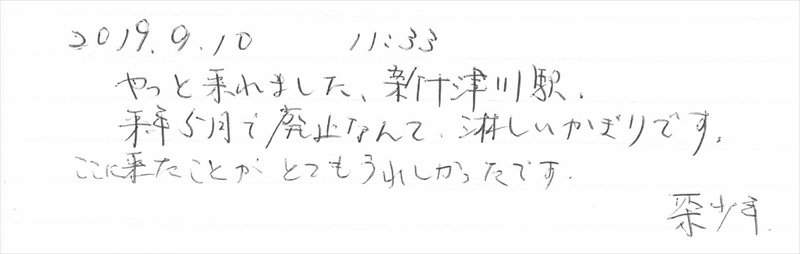 2019.9.10 11:33
やっと来れました、新十津川駅.
来年5月で廃止なんて、淋しいかぎりです。
ここに来たことが とてもうれしかったです.
栗少年.